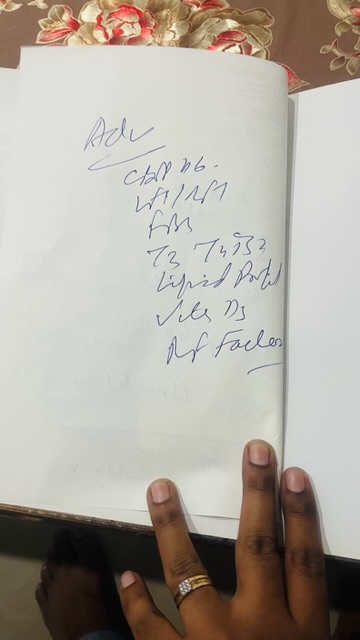 Adv
CBP Hb.
LFT/RFT
FBS
T3 T4 TSH
Lipid Profil
Vita D3
RA Factor